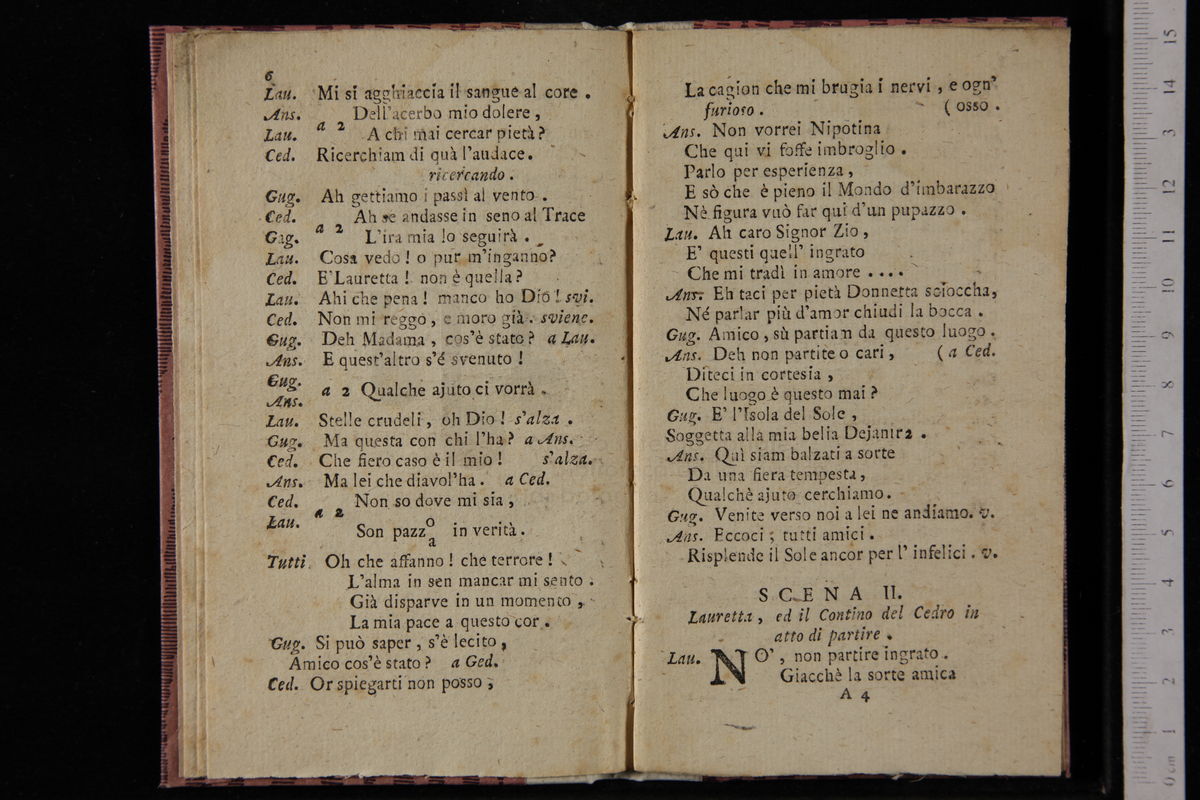 6
Lau. Mi si agghiaccia il sangue al core .
Ans. Dell'acerbo mio dolere ,
a 2
Lau. A chi mai cercar pietà ?
Ced. Ricerchiam di quà l'audace .
ricercando .
Gug. Ah gettiamo i passi al vento .
Ced. Ah se andasse in seno al Trace
a 2
Gug. L'ira mia lo seguirà .
Lau. Cosa vedo ! o pur m'inganno ?
Ced. E' Lauretta ! non è quella ?
Lau. Ahi che pena ! manco ho Dio ! svi.
Ced. Non mi reggo , e moro già . sviene.
Gug. Deh Madama , cos'è stato ? a Lau.
Ans. E quest'altro s'é svenuto !
Gug.
a 2 Qualche ajuto ci vorrà .
Ans.
Lau. Stelle crudeli , oh Dio ! s'alza .
Gug. Ma questa con chi l'ha ? a Ans.
Ced. Che fiero caso è il mio ! s'alza.
Ans. Ma lei che diavol'ha . a Ced.
Ced. Non so dove mi sia ,
a 2
Lau. Son pazzo/a in verità .
Tutti Oh che affanno ! che terrore !
L'alma in sen mancar mi sento .
Già disparve in un momento ,
La mia pace a questo cor .
Gug. Si può saper , s'è lecito ,
Amico cos'è stato ? a Ged.
Ced. Or spiegarti non posso ,
La cagion che mi brugia i nervi , e ogn'
furioso . ( osso .
Ans. Non vorrei Nipotina
Che qui vi fosse imbroglio .
Parlo per esperienza ,
E sò che è pieno il Mondo d'imbarazzo
Nè figura vuò far qui d'un pupazzo .
Lau. Ah caro Signor Zio ,
E' questi quell' ingrato
Che mi tradì in amore ....
Ans. Eh taci per pietà Donnetta scioccha,
Né parlar più d'amor chiudi la bocca .
Gug. Amico , sù partiam da questo luogo .
Ans. Deh non partite o cari , ( a Ced.
Diteci in cortesia ,
Che luogo è questo mai ?
Gug. E' l'Isola del Sole ,
Soggetta alla mia belia Dejanira .
Ans. Quì siam balzati a sorte
Da una fiera tempesta ,
Qualchè ajuto cerchiamo .
Gug. Venite verso noi a lei ne andiamo. v.
Ans. Eccoci ; tutti amici .
Risplende il Sole ancor per l' infelici . v.
SCENA II.
Lauretta , ed il Contino del Cedro in
atto di partire .
Lau. NO' , non partire ingrato .
Giacchè la sorte amica
A 4
15
14
13
12
11
10
9
8
7
6
5
4
3
2
1
0 cm